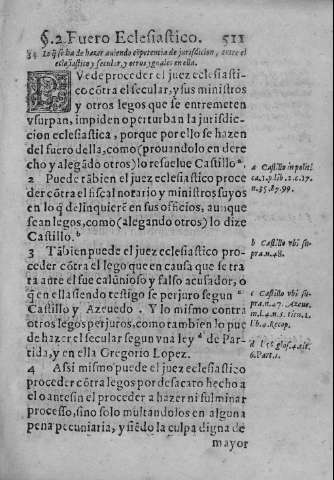 §.2. Fuero Eclesiastico. 511
34 Lo q̃ se ha de hazer auiendo cõpetencia de jurisdicion, entre el
eclesiastico y secular, y otros yguales en ella.
PVede proceder el juez eclesiasti-
co cõtra el secular, y sus ministros
y otros legos que se entremeten
vsurpan, impiden o perturban la jurisdic-
cion eclesiastica, porque por ello se hazen
del fuero della, como (prouandolo en dere
cho y alegãdo otros) lo resuelue Castillo a.
2 Puede tãbien el juez eclesiastico proce
der cõtra el fiscal notario y ministros suyos
en lo q̃ delinquierẽ en sus oficios, aunque
sean legos, como (alegando otros) lo dize
Castillo. b
3 Tãbien puede el juez eclesiastico pro-
ceder cõtra el lego que en causa que se tra
ta ante el fue calunioso y falso acusador, o
q̃ en ella siendo testigo se perjuro segun
Castillo y Azeuedo. Y lo mismo contra
otros legos perjuros, como tambien lo pue
de hazer el secular segun vna ley d de Par-
tida, y en ella Gregorio Lopez.
4 Assi mismo puede el juez eclesiastico
proceder cõtra legos por desacato hecho a
el o ante sin el proceder a hazer ni fulminar
processo, sino solo multandolos en alguna
pena pecuniaria, y siẽdo la culpa digna de
mayor
a Castillo in politi
ca. 1. p. lib. 2. c. 17.
n. 35. 87. 99.
b Castillo vbi su-
pra. n. 48.
c Castillo vbi su-
pra. n. 47. Azeue.